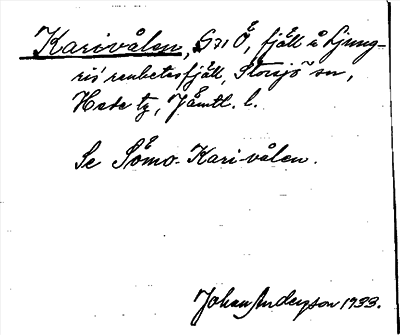 Karivålen, G 31 Å, fjäll å Ljung-
ris' renbetesfjäll, Storsjö sn,
Hede tg, Jämtl. l.
Se Sömo-Karivålen.
Johan Anderzon 1933.